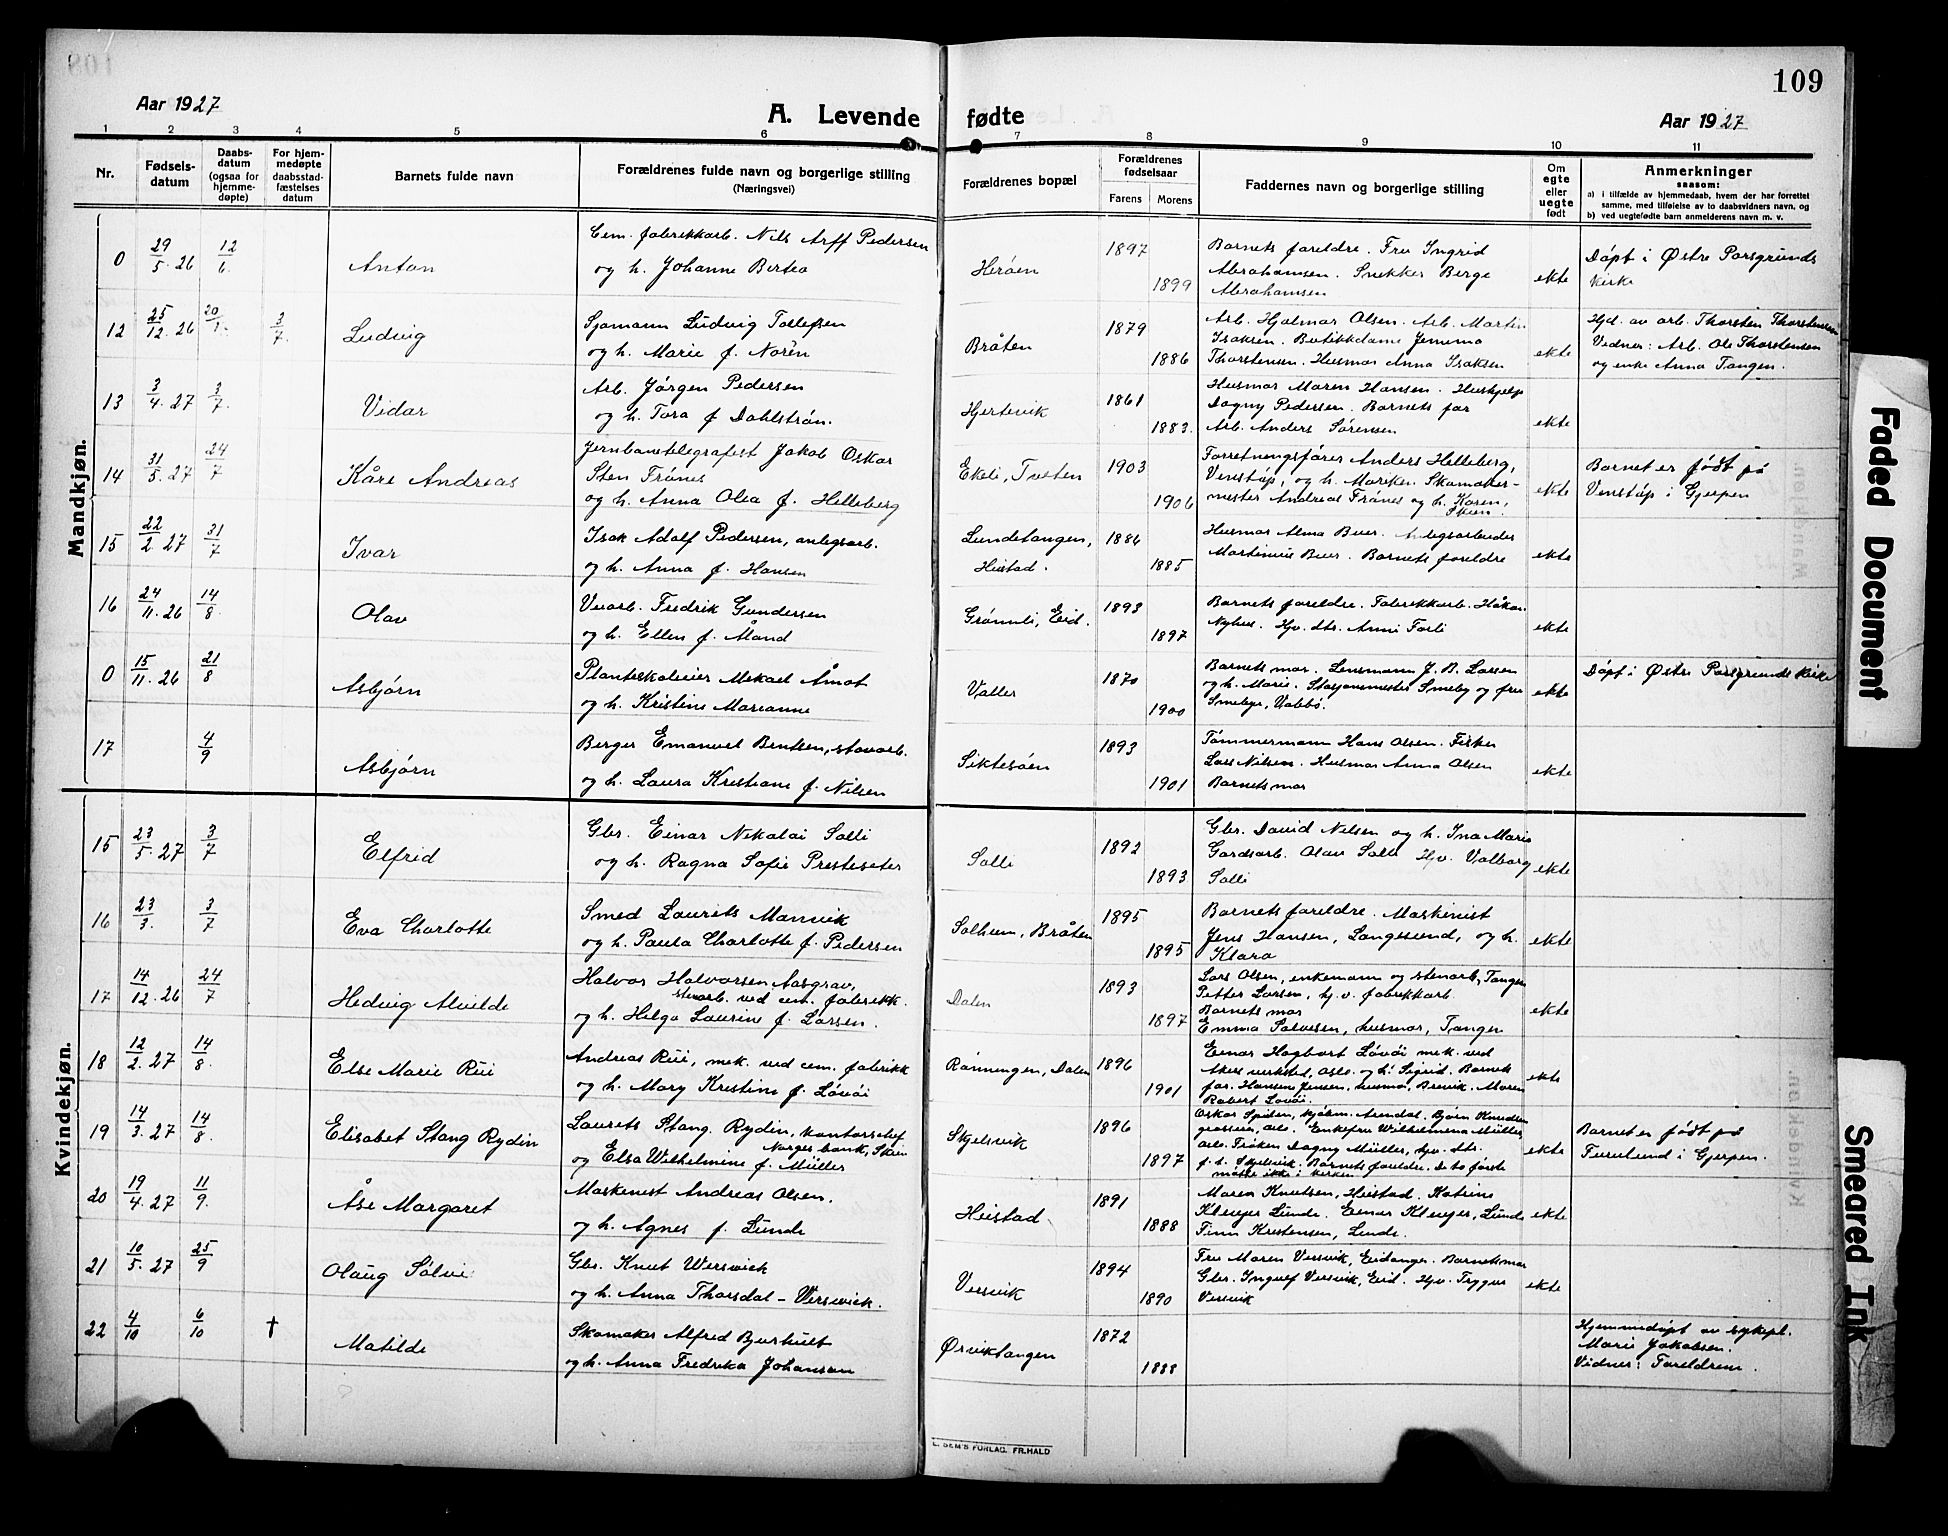 109
Aar 1927
A. Levende fødte
Aar 1927
1 2 3 4 5 6 7 8 9 10 11
Nr.
Fødsels-
datum
Daabs-
datum
(ogsaa for
hjemme-
døpte)
For hjem-
medøpte
daabsstad-
fæstelses
datum
Barnets fulde navn
Forældrenes fulde navn og borgerlige stilling
(Næringsvei)
Forældrenes bopæl
Forældrenes
fødselsaar
Farens Morens
Faddernes navn og borgerlige stilling
Om
egte
eller
uegte
født
Anmerkninger
saasom:
a) i tilfælde av hjemmedaab, hvem der har forrettet
samme, med tilføielse av to daabsvidners navn, og
b) ved uegtefødte barn anmelderens navn m. v.
Mandkjøn.
0 29/5. 26 12/6. Anton
Cem. fabrikkarb. Nils Arff Pedersen
og h. Johanne Bertea
Herøen 1897 1899
Barnets foreldre. Fru Ingrid
Abrahamsen. Snekker Berge
Abrahamsen
ekte
Døpt i Østre Porsgrunds
kirke
12 25/12. 26 20/1. 3/7. Ludvig
Sjømann Ludvig Tollefsen
og h. Marie f. Norén
Bråten 1879 1886
Arb. Hjalmar Olsen. Arb. Martin
Isaksen. Butikkdame Jemima
Thorstensen. Husmor Anna Isaksen
ekte
Hjd. av arb. Thorsten Thorstensen
Vidner: Arb. Ole Thorstensen
og enke Anna Tangen.
13 3/4. 27 3/7. Vidar
Arb. Jørgen Pedersen
og h. Tora f. Dahlstrøm.
Hjertevik 1861 1883.
Husmor Maren Hansen. Hushjelp
Dagny Pedersen. Barnets far
Arb. Anders Sørensen
ekte
14 31/5. 27 24/7 Kåre Andreas
Jernbanetelegrafist Jakob Oskar
Sten Frønes
og h. Anna Olea f. Helleberg
Ekeli, Tveten 1903 1906
Forretningsfører Anders Helleberg,
Venstøp, og h. Marken. Skomaker-
mester Andreas Frønes og h. Karen,
Skien.
ekte
Barnet er født på
Venstøp i Gjerpen
15 22/2. 27 31/7 Ivar
Isak Adolf Pedersen, anlegsarb.
og h. Anna f. Hansen
Lundetangen,
Heistad. 1884 1885
Husmor Alma Buer. Anlegsarbeider
Martinius Buer. Barnets foreldre
ekte
16 24/11. 26 14/8 Olav
Veiarb. Fredrik Gundersen
og h. Ellen f. Åland
Grønnli, Eid. 1893 1897
Barnets foreldre. Fabrikkarb. Håkon
Nyhus. Hjv. dtr. Anni Farli
ekte
0 15/11. 26 21/8 Asbjørn
Planteskoleeier Mekael Åmot
og h. Kristine Marianne
Valler 1870 1900
Barnets mor. Lensmann J. B. Larsen
og h. Marie. Stasjonsmester Smeby og fru
Smeby, Valebø.
ekte
Døpt i Østre Porsgrunds kirke
17 4/9 Asbjørn
Berger Emanuel Bentsen, stuvarb.
og h. Laura Kristiane f. Nilsen
Siktesøen 1893 1901
Tømmermann Hans Olsen. Fisker
Lars Nilsen. Husmor Anna Olsen
Barnets mor
ekte
Kvindekjøn.
15 23/5. 27 3/7 Elfrid
Gbr. Einar Nikolai Solli
og h. Ragna Sofie Presteseter
Solli 1892 1893
Gbr. David Nilsen og h. Ina Marie
Gardsarb. Olav Solli Hjv. Valborg
Solli
ekte
16 23/3. 3/7 Eva Charlotte
Smed Laurits Mannvik
og h. Paula Charlotte f. Pedersen
Solheim, Bråten 1895 1895
Barnets foreldre. Maskinist
Jens Hansen, Langesund, og h.
Klara
ekte
17 14/12. 26 24/7 Hedvig Alvilde
Halvor Halvorsen Aasgrav,
stenarb. ved cem. fabrikk.
og h. Helga Laurine f. Larsen.
Dalen 1893 1897
Lars Olsen, enkemann og stenarb, Tangen
Petter Larsen, hj.v. fabrikkarb.
Barnets mor
Emma Salvesen, husmor, Tangen
ekte
18 12/2. 27 14/8. Else Marie Rui
Andreas Rui, mek. ved cem. fabrikk
og h. Mary Kristine f. Løvøi
Rønningen, Dalen 1896 1901
Einar Hagbart Løvøi mek. ved
Akers verksted, Oslo og h. Sigrid. Barnets
far. Hansine Jensen, husmor, Brevik. Maren
Robert Løvøi.
ekte
19 14/3. 27 14/8. Elisabet Stang Rydin
Laurits Stang. Rydin, kontorschef
Norges bank, Skien
og Elsa Wilhelmine f. Müller
Skjelsvik 1896 1897
Oskar kjøbm. Arendal. Bjørn Knudsen
grosserer, Oslo. Enkefru Wilhelmina Müller,
Oslo. Frøken Dagny Müller, hjv. dtr.
f. t. Skjelsvik. Barnets foreldre. De to første
møtte ikke i kirken
ekte
Barnet er født på
Furulund i Gjerpen.
20 19/4. 27 11/9. Åse Margaret
Maskinist Andreas Olsen.
og h. Agnes f. Lunde
Heistad 1891 1888
Maren Knutsen, Heistad. Katrine
Klenger Lunde. Einar Klenger, Lunde
Finn Kristensen, Lunde.
ekte
21 10/5. 27 25/9 Olaug Sølvi
Gbr. Knut Wersvick
og h. Anna Thorsdal-Wersvick.
Versvik 1894 1890
Fru Maren Versvik, Eidanger. Barnets mor
Gbr. Ingulf Versvik, Eid. Hjv. Trygve
Versvik
ekte
22 4/10 6/10 † Matilde
Skomaker Alfred Bjurhult
og h. Anna Fredrika Johanson
Ørviktangen 1872 1888
Hjemmedøpt av sykepl.
Marie Jakobsen.
Vidner: Foreldrene.
E. SEM'S FORLAG. FR.HALD
Faded Document
Smeared Ink